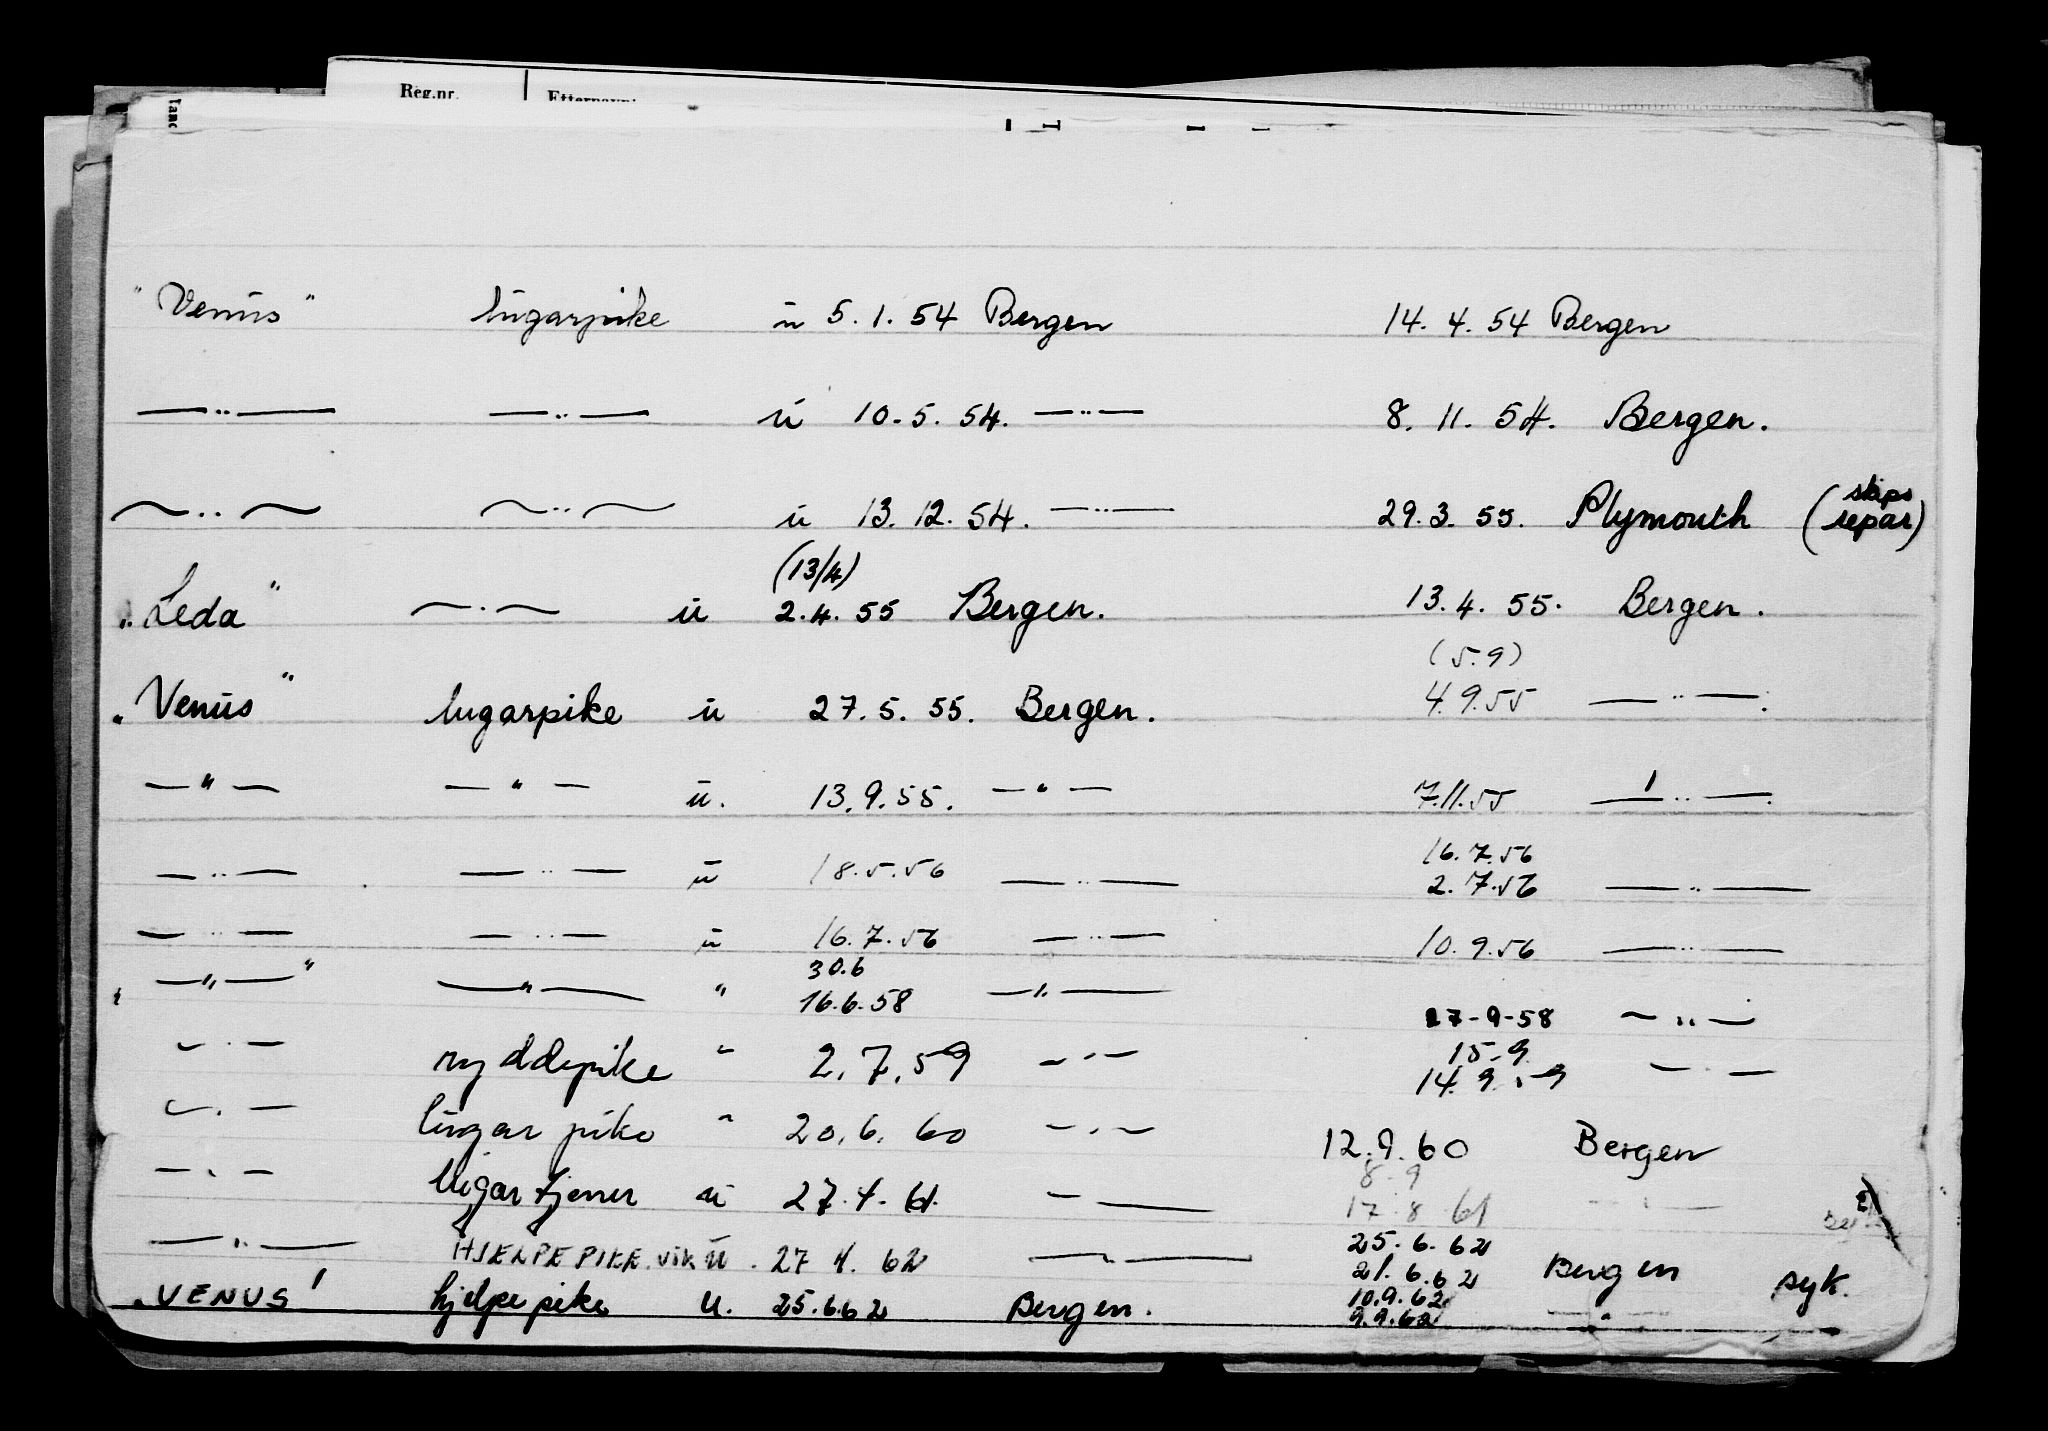 Reg.nr. Etternavn
"Venus" lugarpike u 5.1.54 Bergen 14.4.54 Bergen
—..— —..— u 10.5.54. —..— 8.11.54. Bergen.
—..— —..— u 13.12.54. —..— 29.3.55. Plymouth (skips repar)
(13/4)
"Leda" —.— u 2.4.55 Bergen. 13.4.55. Bergen.
(5.9)
"Venus" lugarpike u 27.5.55. Bergen. 4.9.55 —..—.
—"— —"— u. 13.9.55. —"— 7.11.55 —..—.
16.7.56
—..— —..— u 18.5.56 —..— 2.7.56 —..—
—..— —..— u 16.7.56 —..— 10.9.56 —..—
30.6
—"—" —"— " 16.6.58 —"— 27-9-58 —..—
15-9
—.— ryddepike " 2.7.59 —.— 14.9.59 —.—
—.— lugarpike " 20.6.60 —.— 12.9.60 Bergen
8-9
—.— lugartjener u 27.4.61. — — 17.8.61 —.—
25.6.62
—..— HJELPEPIKE. vik u. 27 4. 62 —.— 21.6.62 Bergen syk.
10.9.62
"VENUS' hjelpepike u. 25.6.62 Bergen. 9.9.62 —"—